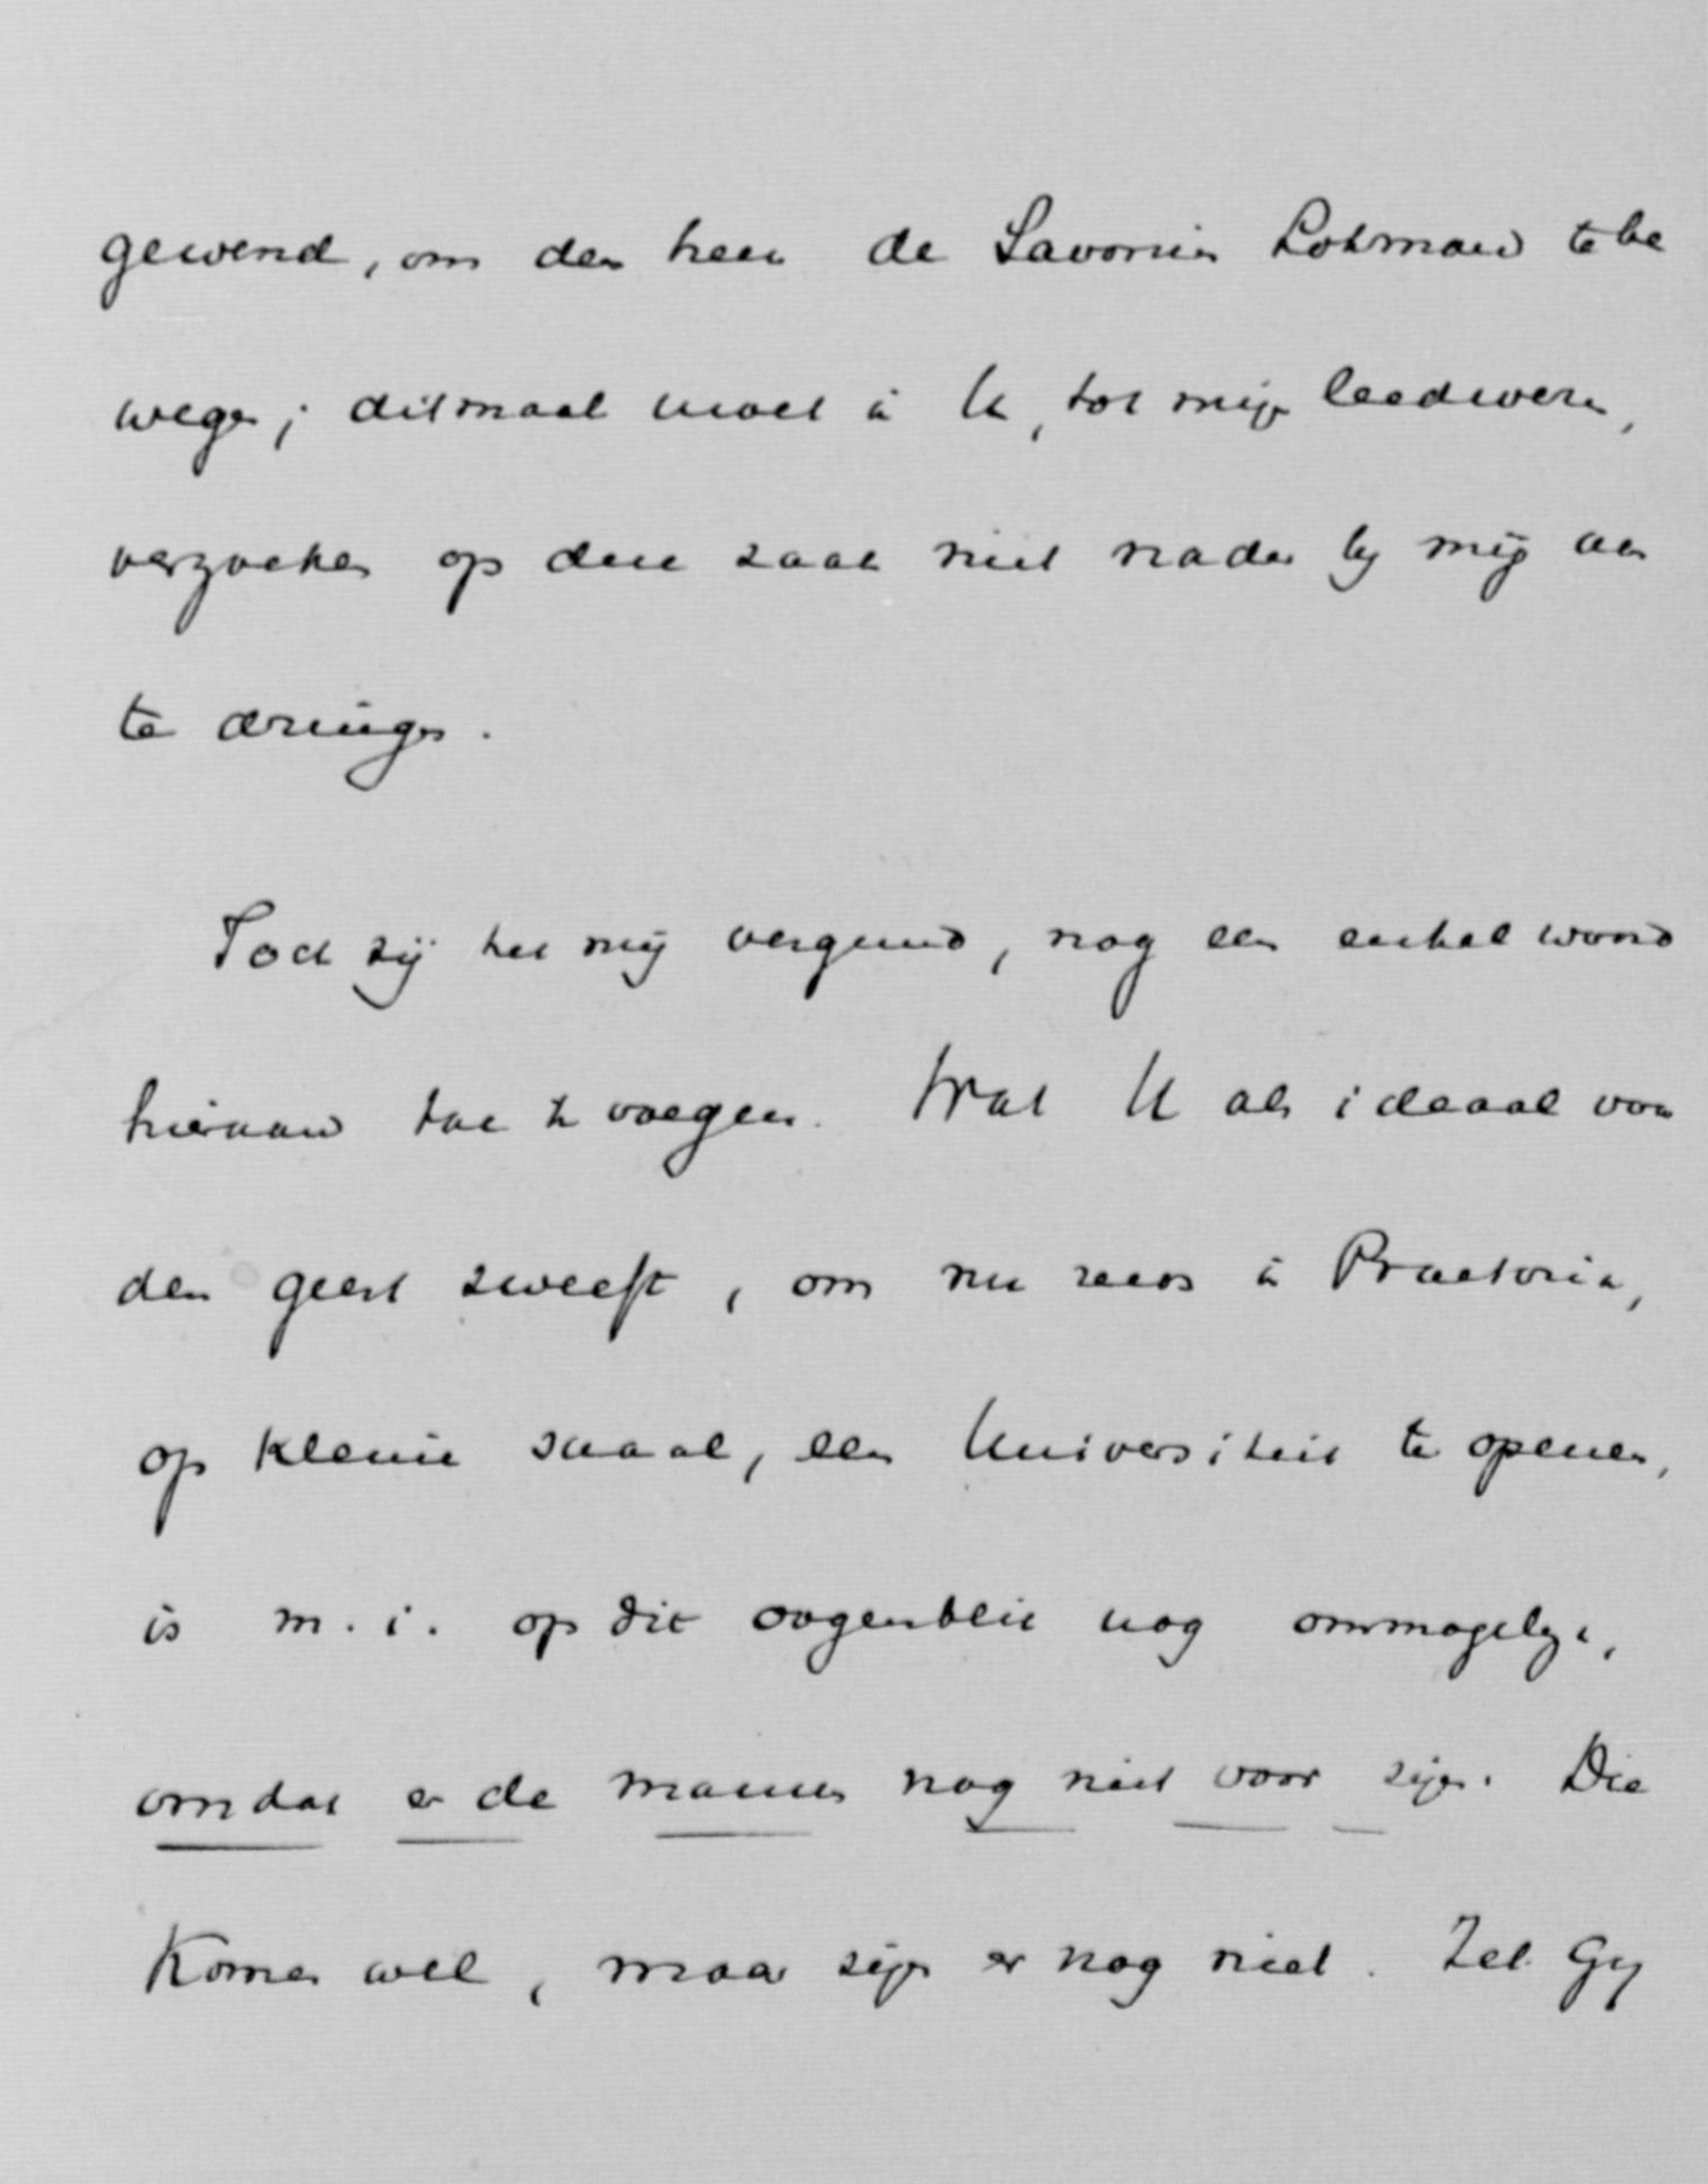 gewend, om den heer de Savornin Lohman te be
wegen; ditmaal moet ik U, tot mijn leedwezen,
verzoeken op deze zaak niet nader by mij aan
te dringen.
Toch zij het mij vergund, nog een enkel woord
hieraan toe te voegen. Wat U als ideaal voor
den geest zweeft, om nu reeds in Praetoria,
op kleine schaal, een Universiteit te openen,
is m. i. op dit oogenblik nog onmogelijk,
omdat er de mannen nog niet voor zijn. Die
Komen wel, maar zijn er nog niet. Zelf Gy